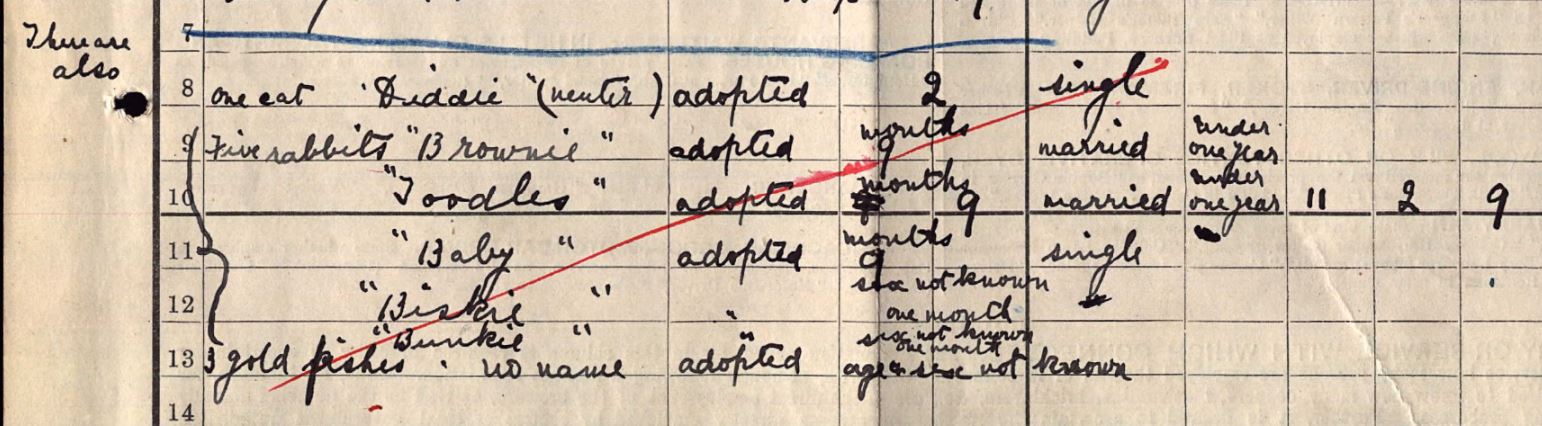 There are
also
7
8 one cat "Diddie" (neuter) adopted 2 single
9 Five rabbits "Brownie" adopted months 9 married under one year
10 "Toodles" adopted months 9 married under one year 11 2 9
11 "Baby" adopted months 9 single
sex not known
12 "Biskie" " one month
"Bunkie" " sex not known one month
13 3 gold fishes . no name adopted age & sex not known
14